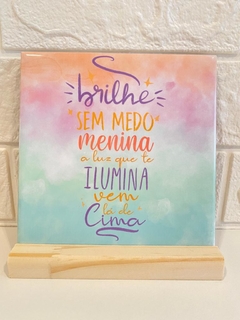 brilhe
SEM MEDO
menina
a luz que te
ILUMINA
vem
lá de
Cima